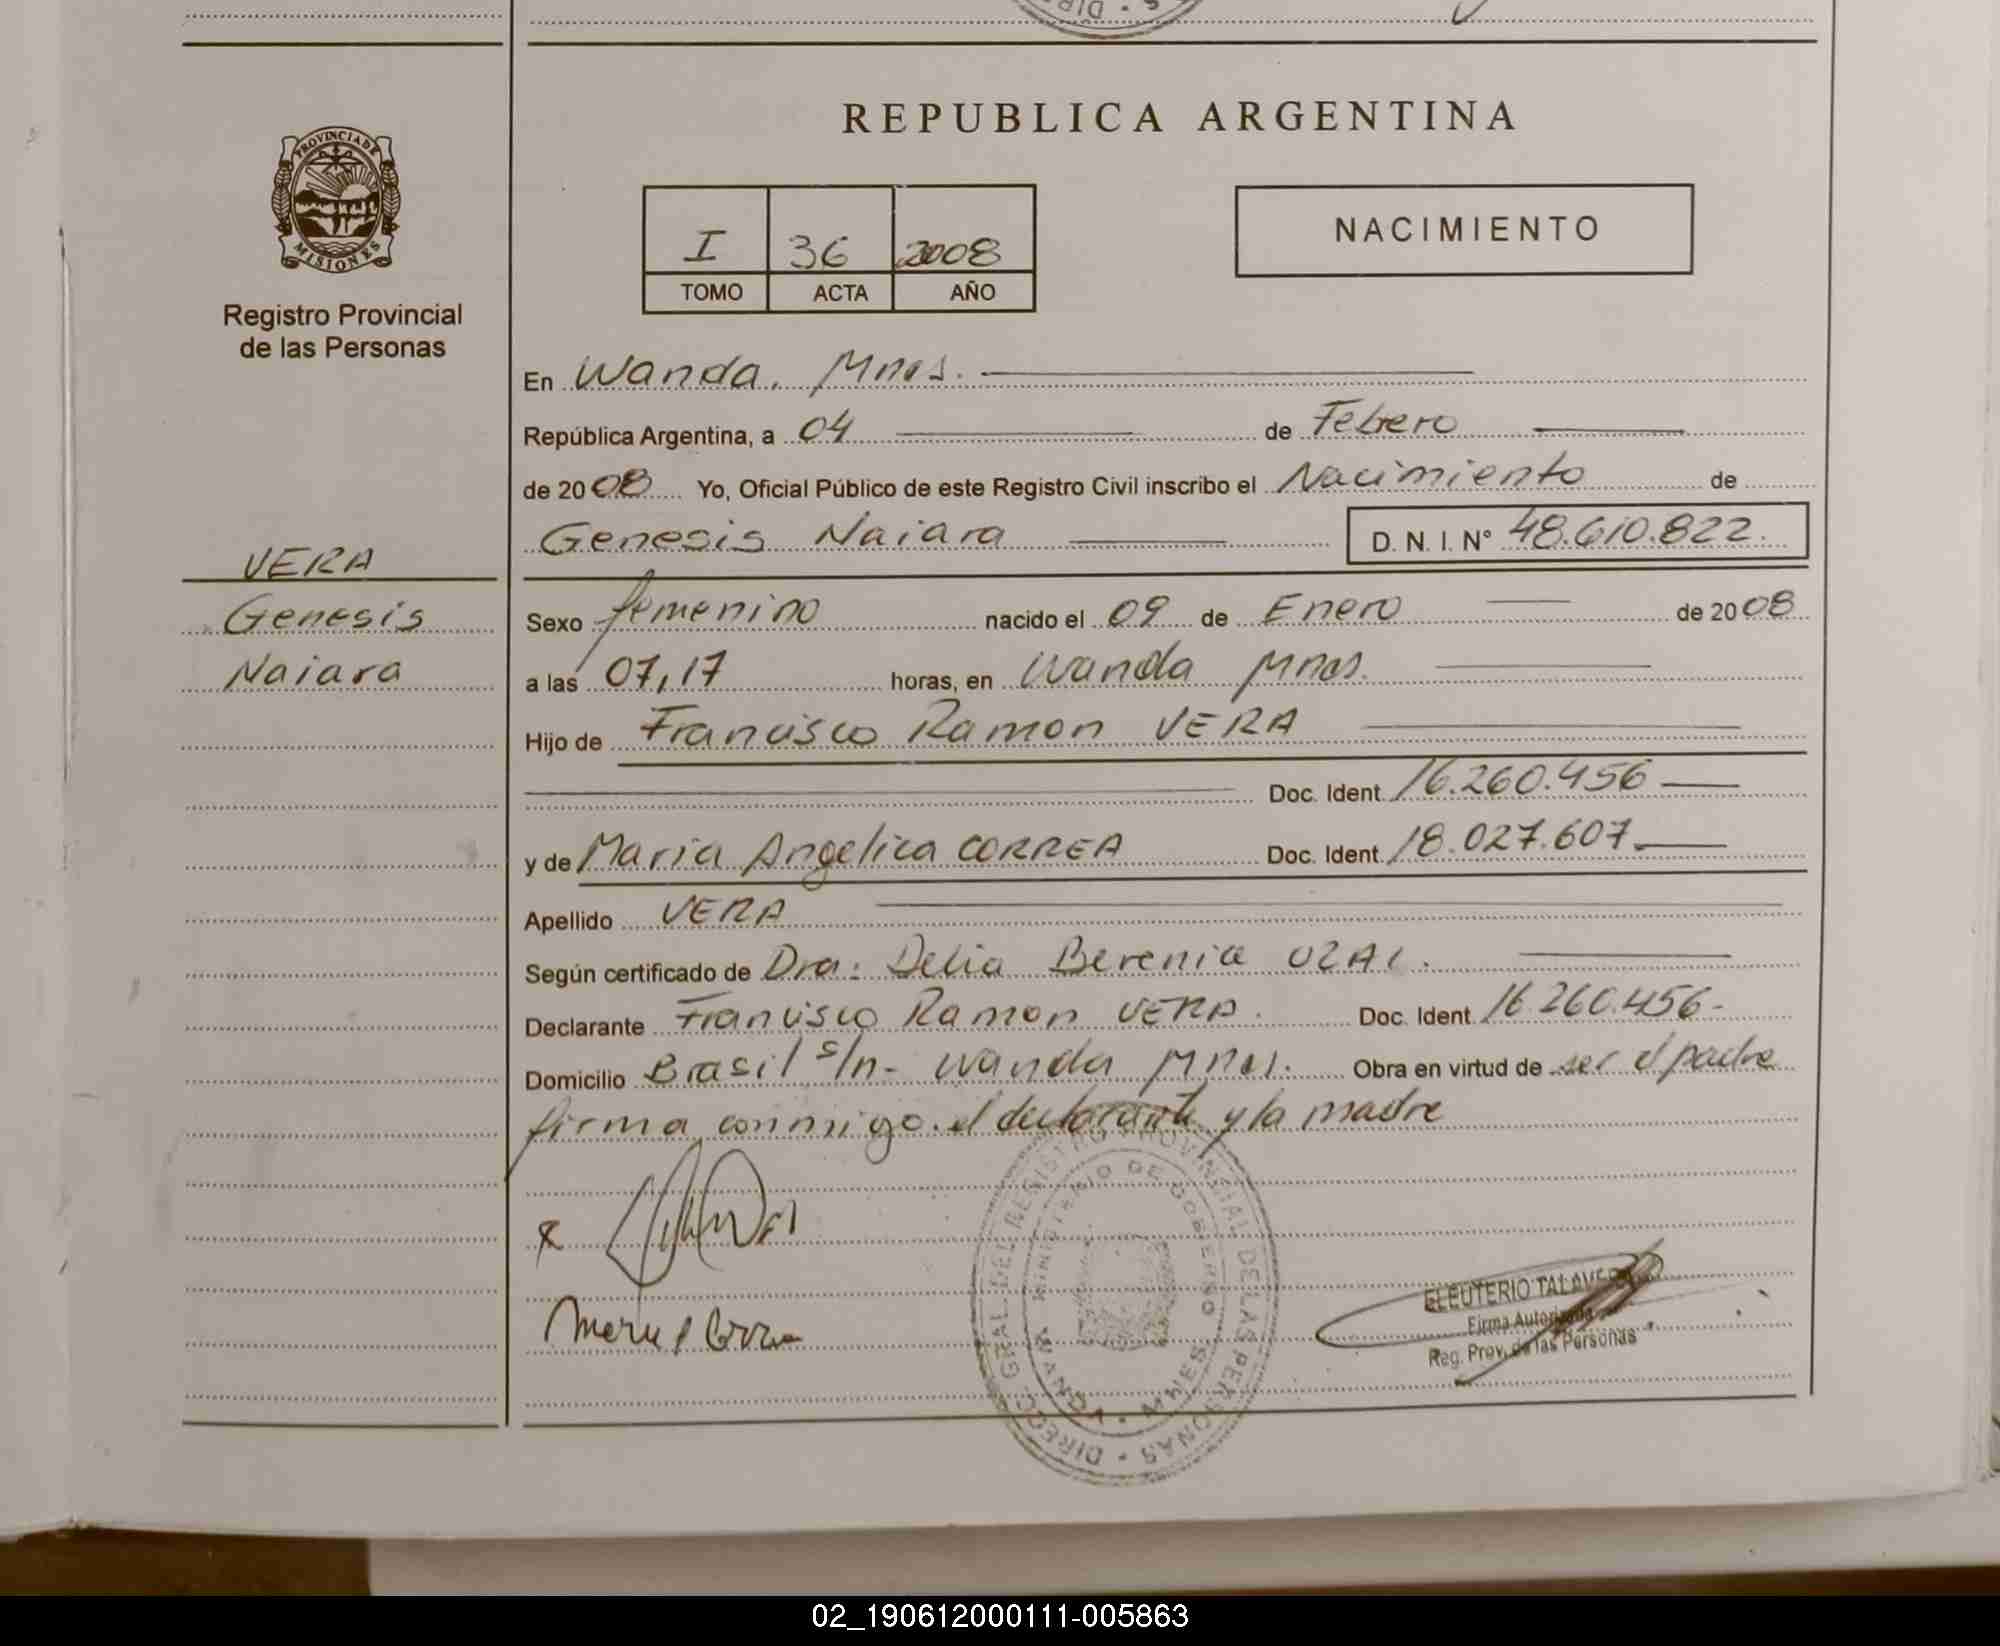 REPUBLICA ARGENTINA
PROVINCIA DE
MISIONES
Registro Provincial
de las Personas
I 36 2008
TOMO ACTA AÑO
NACIMIENTO
En Wanda. Mnes.
República Argentina, a 04 de Febero
de 2008 Yo, Oficial Público de este Registro Civil inscribo el Nacimiento de
Genesis Naiara D. N. I. N° 48.610.822.
VERA
Genesis
Naiara
Sexo femenino nacido el 09 de Enero de 2008
a las 07,17 horas, en Wanda Mnes.
Hijo de Francisco Ramon VERA
Doc. Ident. 16.260.456
y de Maria Angelica CORREA Doc. Ident. 18.027.607.
Apellido VERA
Según certificado de Dra: Delia Berenice UZAL.
Declarante Francisco Ramon VERA. Doc. Ident. 16.260.456-
Domicilio Brasil s/n- Wanda Mnes. Obra en virtud de ser el padre
firma conmigo. el declarante y la madre
DIRECC. GRAL. DEL REGISTRO PROVINCIAL DE LAS PERSONAS
MINISTERIO DE GOBIERNO
WANDA - MNES.
ELEUTERIO TALAVERA
Firma Autorizada
Reg. Prov. de las Personas
02_190612000111-005863